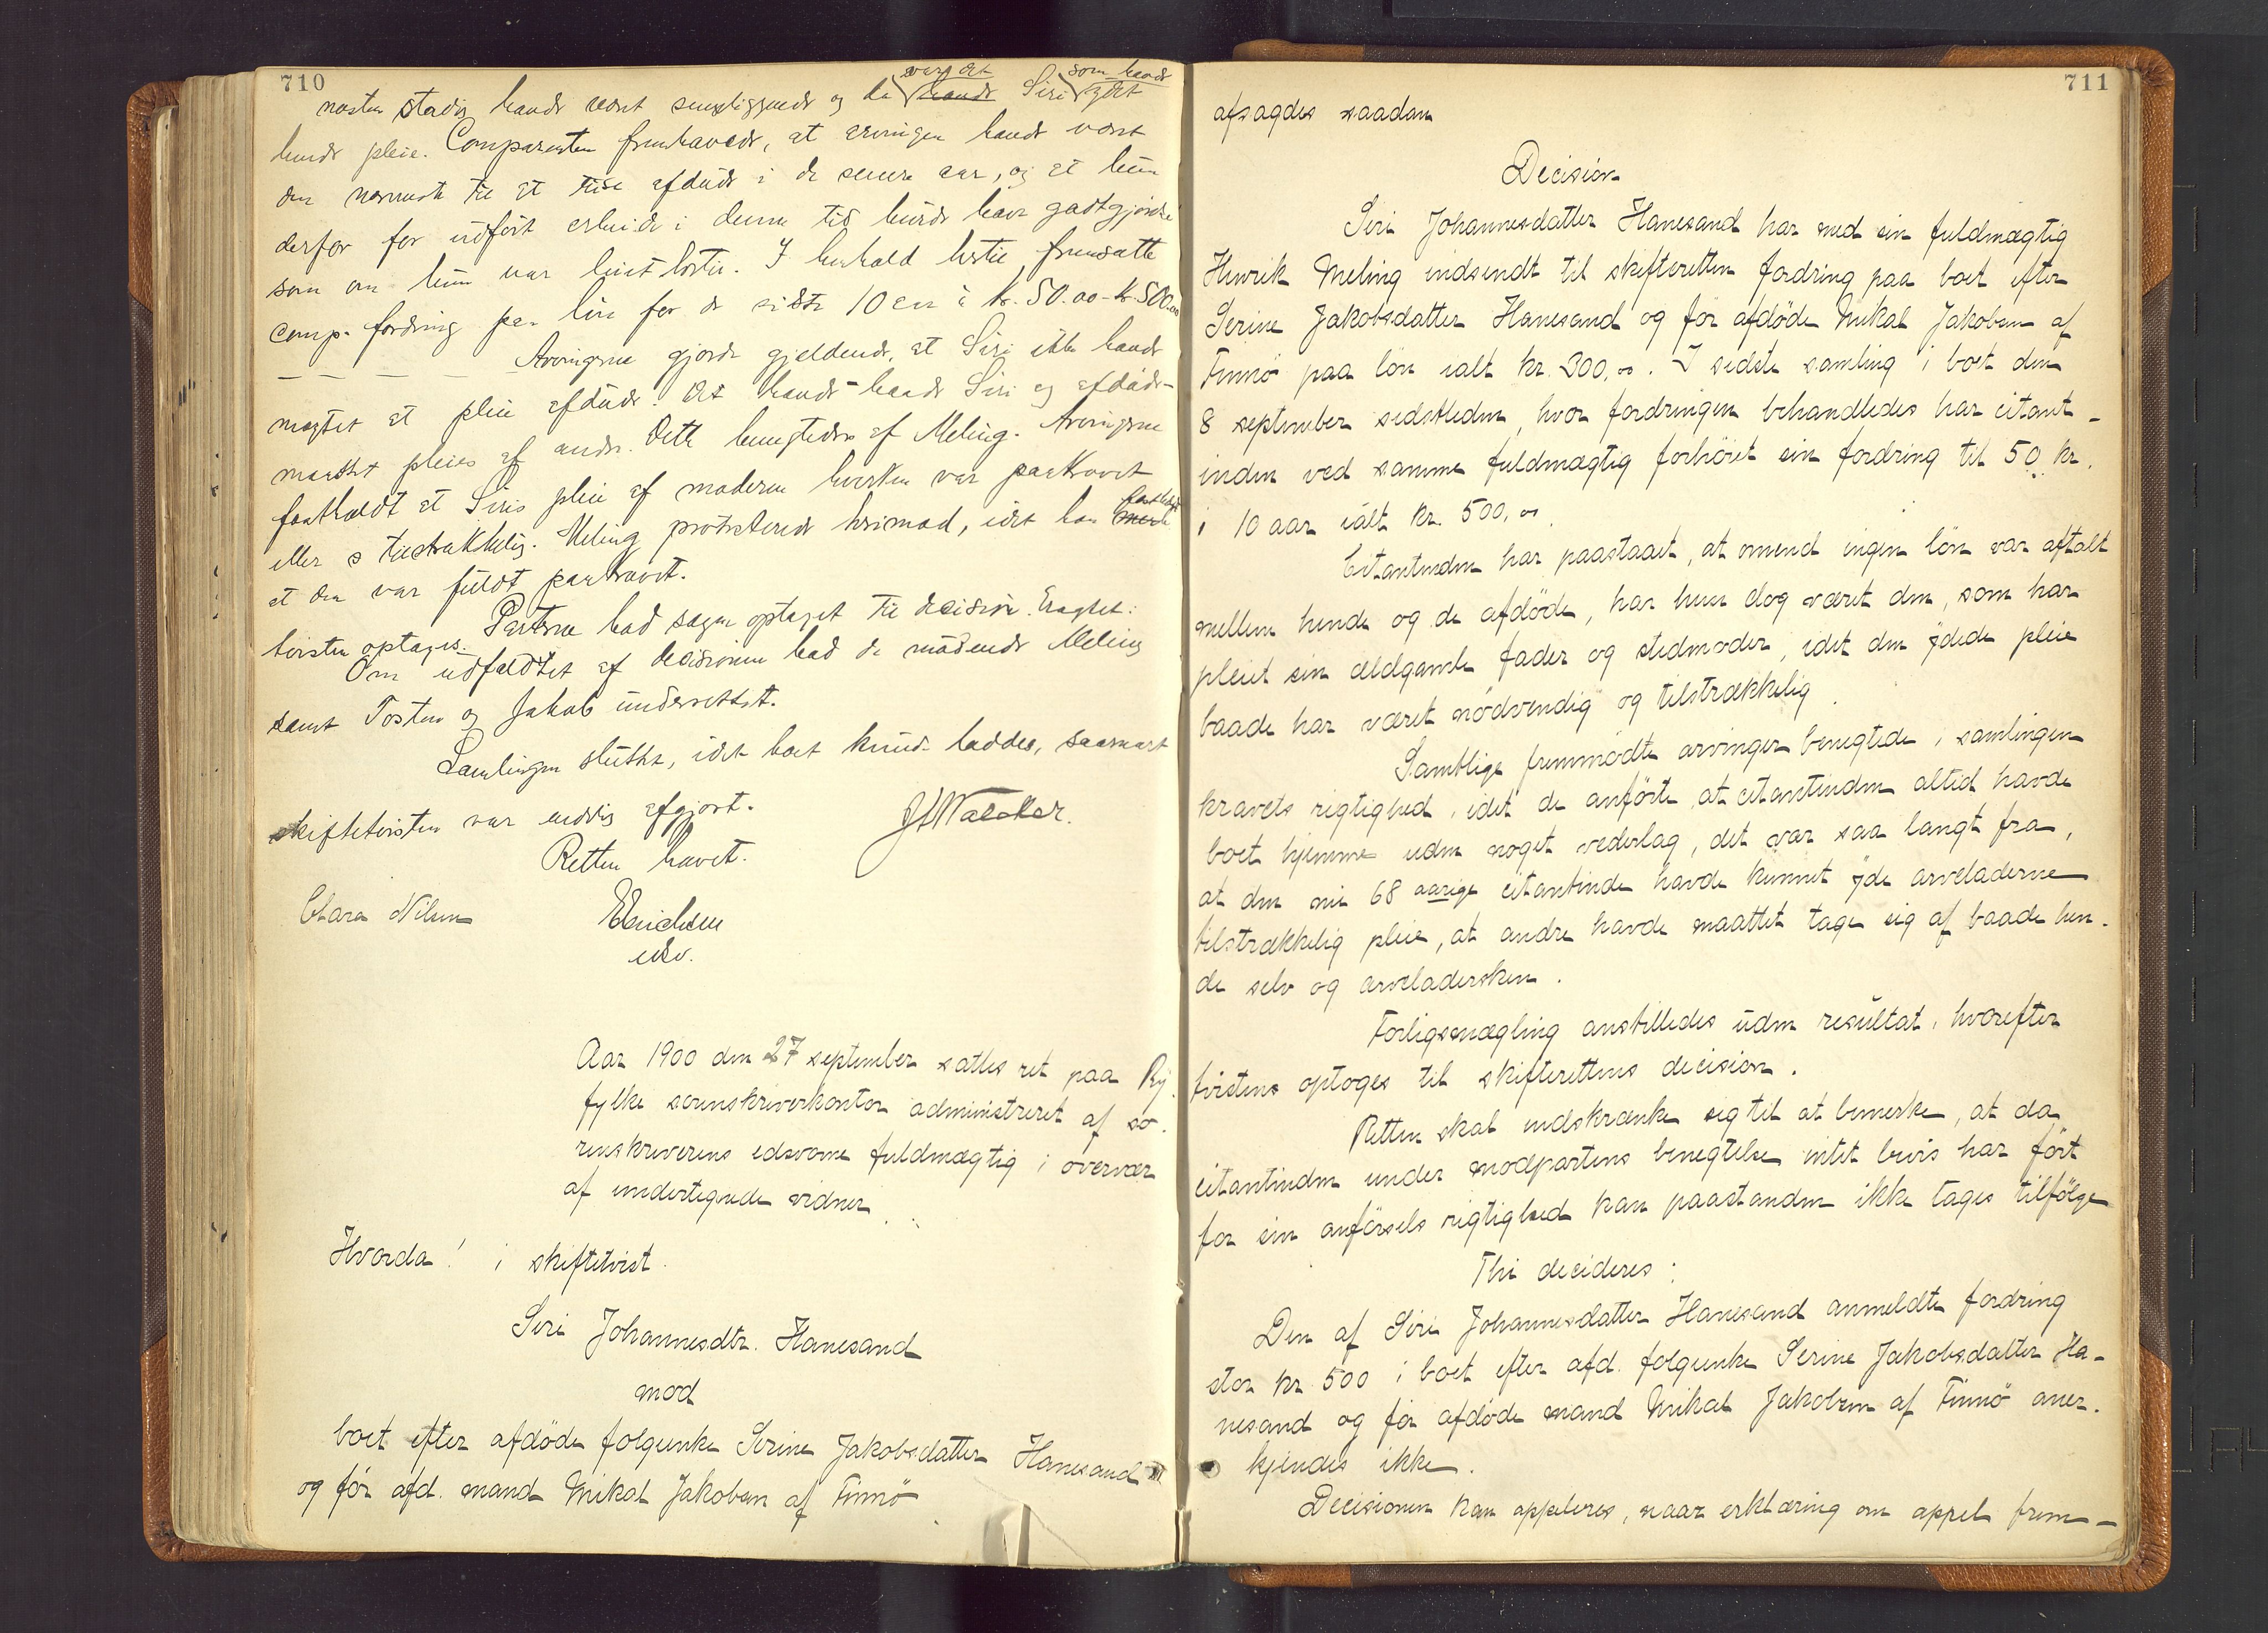 710
næsten stadig havde været sengeliggende og da havde var det Siri som havde ydet
hende pleie. Comparenten fremhævede, at arvingen havde været
den nærmeste til at reise afdøde i de senere aar, og at hun
derfor for udført arbeide i denne tid burde have godtgjørelse
som om hun var leiet hertil. I henhold hertil fremsatte
comp. fordring paa løn for de sidste 10 aar à kr. 50.00 - kr. 500.00
Arvingerne gjorde gjældende, at Siri ikke havde
magtet at pleie afdøde. Det havde baade Siri og afdøde
maattet pleies af andre. Dette benegtedes af Meling. Arvingerne
fastholdt at Siris pleie af moderen hverken var paakrævet
eller tilstrækkelig. Meling protesterede herimod, idet han fastholdt
at den var fuldt paakrævet.
Parterne bad sagen optaget til decision. Eragtet:
tvisten optages.
Om udfaldet af decisionen bad de mødende Meling
samt Tosten og Jakob underrettet.
Samlingen sluttet, idet boet kunde laddes, saasnart
skiftetvisten var endelig afgjort.
Retten hævet.
Clara Nilsen
edsv.
Aar 1900 den 27 september sattes ret paa Ry-
fylke sorenskriverkontor administreret af so-
renskriverens edsvorne fuldmægtig i overvær
af undertegnede vidner
Hvorda! i skiftetvist
Siri Johannesdtr. Hanesand
mod
boet efter afdøde folgeenke Serine Jakobsdatter Hanesand
og før afd. mand Mikal Jakobsen af Finnø
711
afsagdes saadan
Decision
Siri Johannesdatter Hanesand har med sin fuldmægtig
Henrik Meling indsendt til skifteretten fordring paa boet efter
Serine Jakobsdatter Hanesand og før afdøde Mikal Jakobsen af
Finnø paa løn ialt kr. 300,00. I sidste samling i boet den
8 september sidstleden, hvor fordringen behandledes har citant-
inden ved samme fuldmægtig forhøiet sin fordring til 50 kr.
i 10 aar ialt kr. 500,00.
Citantinden har paastaaet, at omend ingen løn var aftalt
mellem hende og de afdøde, har hun dog været den, som har
pleiet sin ældgamle fader og stedmoder, idet den ydede pleie
baade har været nødvendig og tilstrækkelig.
Samtlige fremmødte arvinger benegtede i samlingen
kravets rigtighed, idet de anførte at citantinden altid havde
boet hjemme uden noget vederlag, det var saa langt fra,
at den nu 68 aarige citantinde havde kunnet yde arveladerne
tilstrækkelig pleie, at andre havde maattet tage sig af baade hen-
de selv og arveladersken.
Forligsmægling anstilledes uden resultat, hvorefter
tvistens optoges til skifterettens decision.
Retten skal indskrænke sig til at bemerke, at da
citantinden under modpartens benegtelse intet bevis har ført
for sin anførsels rigtighed kan paastanden ikke tages tilfølge
Thi decideres:
Den af Siri Johannesdatter Hanesand anmeldte fordring
stor kr 500 i boet efter afd. folgeenke Serine Jakobsdatter Ha-
nesand og før afdøde mand Mikal Jakobsen af Finnø aner-
kjendes ikke.
Decisionen kan appelleres, naar erklæring om appel frem-